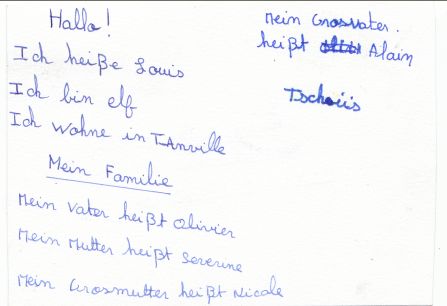 Hallo!
Ich heiße Louis
Ich bin elf
Ich wohne in TAnville
Mein Familie
Mein Vater heißt Olivier
Mein Mutter heißt Severine
Mein Grosmutter heißt Nicole
Mein Grosvater.
heißt Alain
Tschoüs